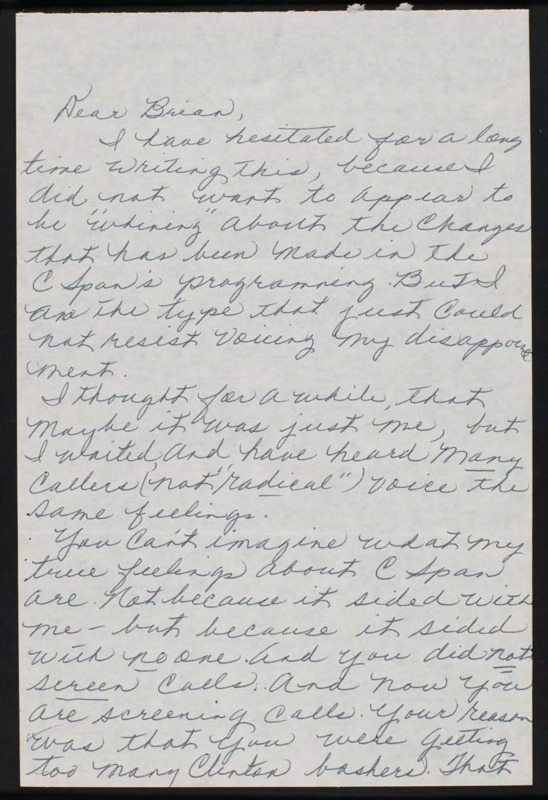 Dear Brian,
I have hesitated for a long
time writing this, because I
did not want to appear to
be "whining" about the changes
that has been made in the
C Span's programming. But I
am the type that just could
not resist voicing my disappoint
ment.
I thought for a while, that
maybe it was just me, but
I waited, and have heard many
callers (not "radical") voice the
same feelings.
You can't imagine what my
true feelings about C Span
are. Not because it sided with
me - but because it sided
with no one. And you did not
screen calls. And now you
are screening calls. Your reason
was that you were getting
too many Clinton bashers. That